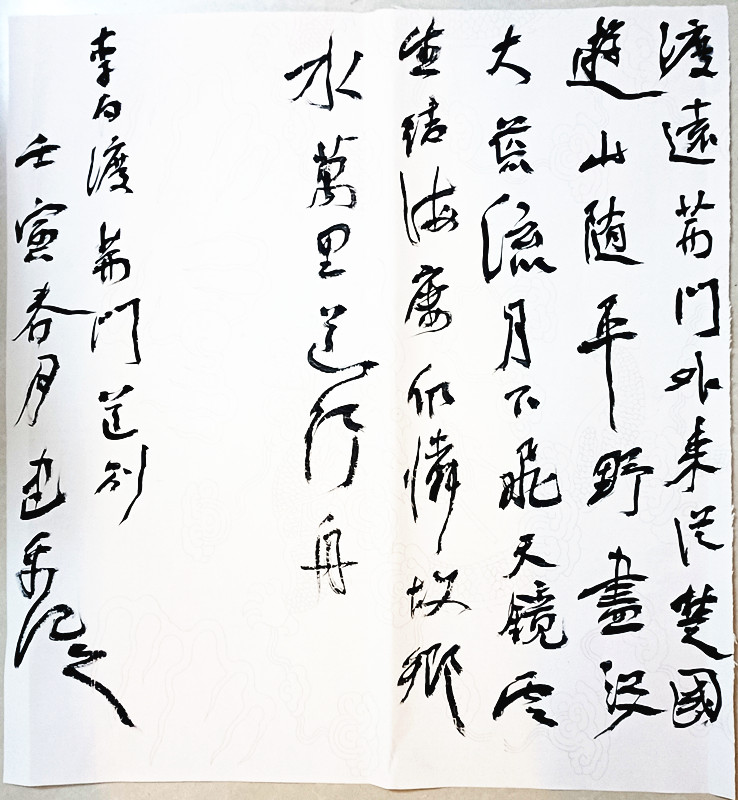 渡遠荊門外來從楚國
遊山随平野盡江入
大荒流月下飛天鏡雲
生結海樓仍憐故鄉
水萬里送行舟
李白渡荊門送别
壬寅春月建記之